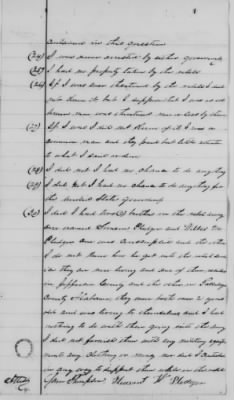 contained in this question
(24) I was never arrested by either government
(25) I had no property taken by the rebels
(26) If I was ever threatened by the rebels I did
not know it but I suppose that I was as no
union man was threatened more or less by them
(27) If I was I did not know of it I was a
common man and they paid but little attention
to what I said or done
(28) I did not I had no chance to do anything
(29) I did not I had no chance to do anything for
the United States Government
(30) I did I had two brothers in the rebel army
one named Simeon Pledger and Wiley W
Pledger one was conscripted and the other
I do not know how he got into the rebel service
they are now living and one of them resides
in Jefferson County and the other in Talledega
County Alabama they were both over 21 years
old and was living to themselves and I had
nothing to do with them going into the army
I did not furnish them with any military equipment
any clothing or money nor did I contribute
in any way to support them while in the rebel
Stewart W Pledger
Attest